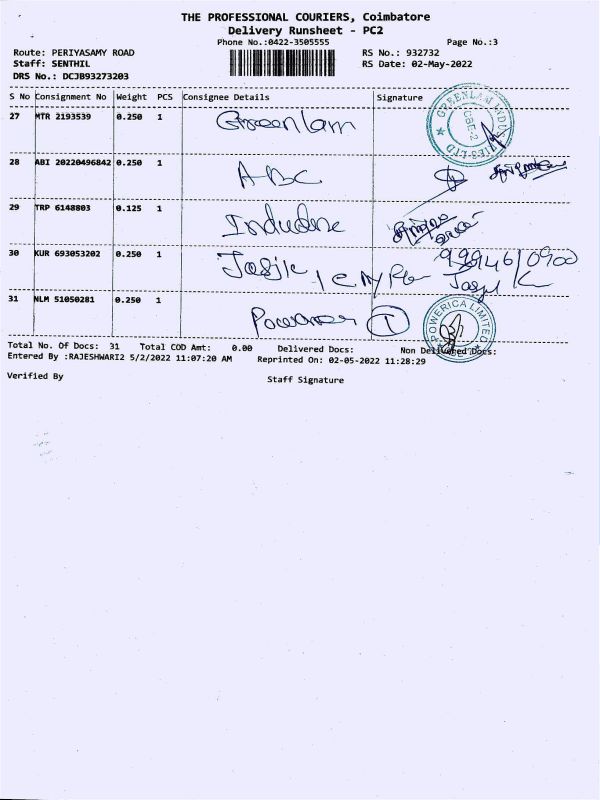 THE PROFESSIONAL COURIERS, Coimbatore
Delivery Runsheet - PC2
Phone No.:0422-3505555 Page No.:3
Route: PERIYASAMY ROAD RS No.: 932732
Staff: SENTHIL RS Date: 02-May-2022
DRS No.: DCJB93273203
S No Consignment No Weight PCS Consignee Details Signature
27 MTR 2193539 0.250 1 Greenlam GREENLAM INDUSTRIES LTD CBE-2
28 ABI 20220496842 0.250 1 ABC
29 TRP 6148803 0.125 1
30 KUR 693053202 0.250 1 9994610900
31 NLM 51050281 0.250 1 1 POWERICA LIMITED
Total No. Of Docs: 31 Total COD Amt: 0.00 Delivered Docs: Non Delivered Docs:
Entered By :RAJESHWARI2 5/2/2022 11:07:20 AM Reprinted On: 02-05-2022 11:28:29
Verified By Staff Signature